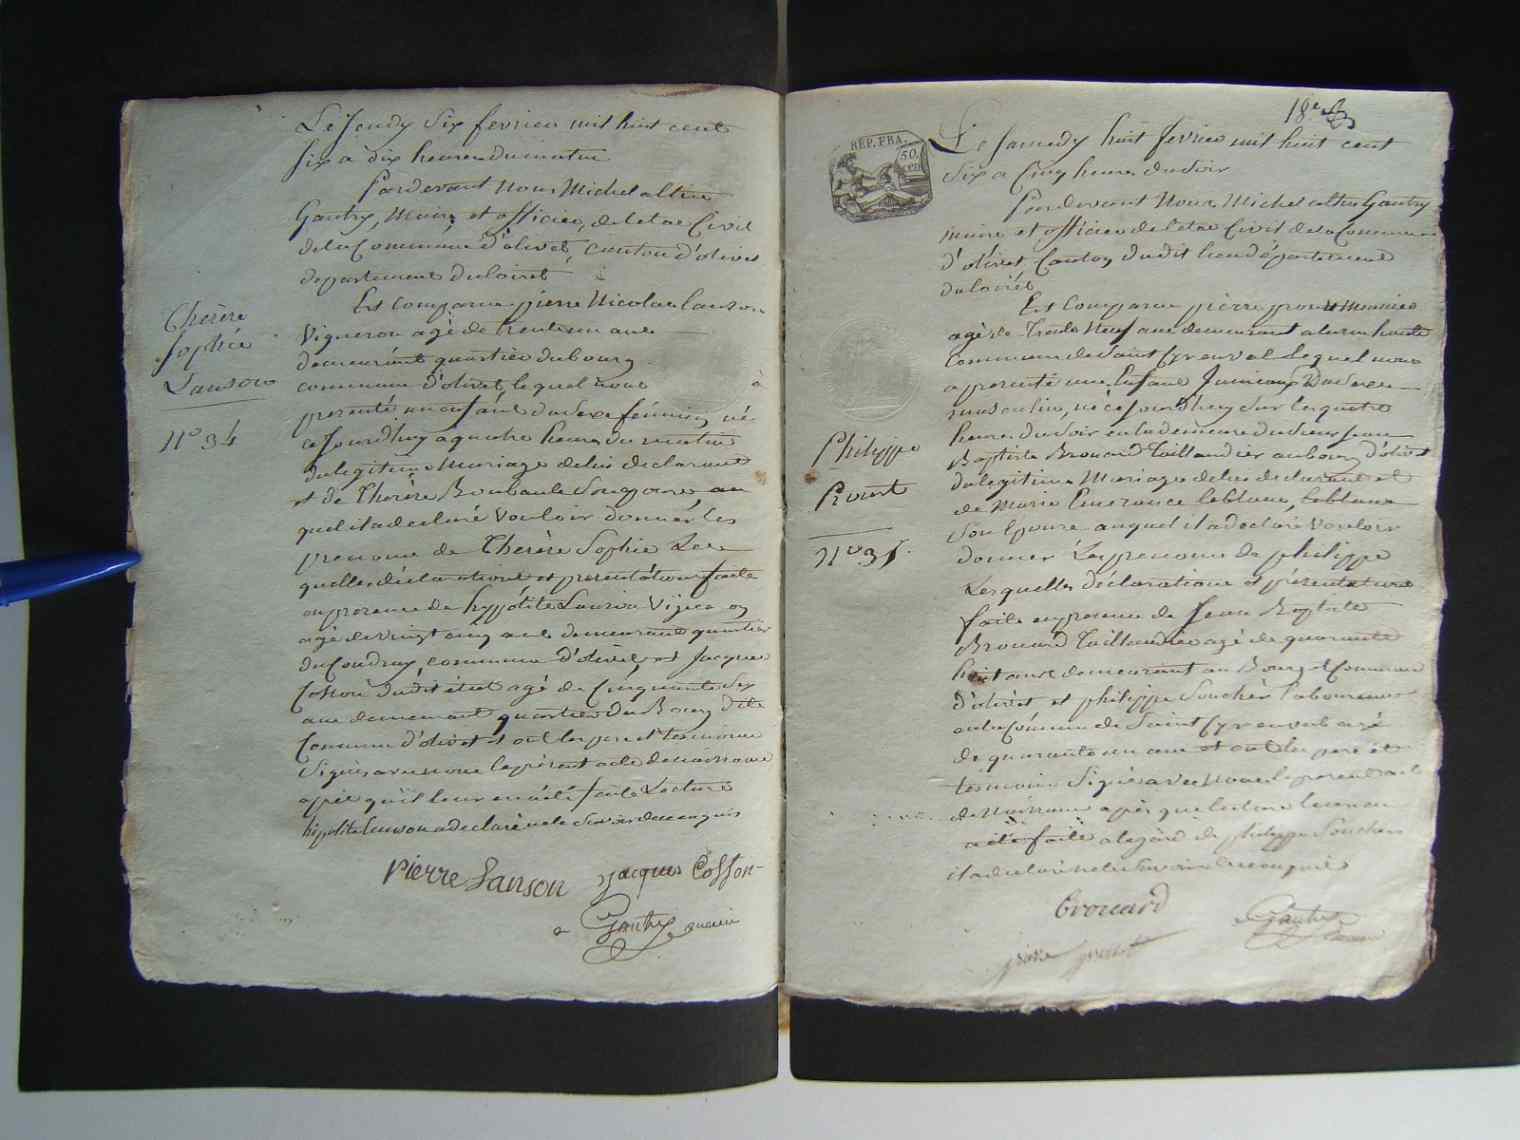 Le Jeudy Six fevrier mil huit cent
Six a dix heures du matin
Pardevant Nous Michel altin
Gautry, Maire et officier, de letat Civil
de la Commune d'olivet, Canton d'olivet
departement du loiret
Est Comparu pierre Nicolas Lanson
Vigneron agé de trente un ans
demeurant quartier du bourg
commune d'olivet, lequel nous à
presenté un enfant du Sexe féminin, né
ce Jourdhuy a quatre heures du matin
du legitime Mariage de lui declarant
et de Therèse Boubault Son epouse au
quel il a declaré Vouloir donner les
prenoms de Therèse Sophie Les
quelles déclarations et presentation faite
en presence de hyppolite Lanson Vigneron
agé de Vingt cinq ans demeurant quartier
du Coudray, commune d'olivet, et Jacques
Cosson dudit état agé de Cinquante Six
ans demeurant quartier du Bourg dite
Commune d'olivet et ont les pere et temoins
Signés avec nous le présent acte de naissance
après qu'il leur en a été faite Lecture
hipolite lanson a declaré ne le Savoir de ce enquis
Pierre Lanson Jacques Cosson
Gautry maire
Therèse
Sophie
Lanson
N° 34
18e
REP. FRA.
50.
Le Samedy huit fevrier mil huit cent
Six a Cinq heures du Soir
Pardevant Nous, Michel altin Gautry
maire et officier de letat Civil de la Commune
d'olivet Canton dudit lieu département
du loiret
Est Comparu pierre prout Meunier
agé de Trente Neuf ans demeurant
Commune de Saint Cyr en val lequel nous
a presenté une Enfant Jumeaux du Sexe
masculin, né ce Jourdhuy Sur les quatre
heures du Soir en la demeure du Sieur Jean
Baptiste Brouard Taillandier au bourg d'olivet
du legitime Mariage de lui declarant et
de Marie Emerance leblanc, leblanc
Son Epouse auquel il a declaré Vouloir
donner Les prenoms de philippe
Lesquelles déclarations et présentations
faite en presence de Jean Baptiste
Brouard Taillandier agé de quarante
huit ans demeurant au Bourg et Commune
d'olivet et philippe Souchet laboureur
en la Commune de Saint Cyr en val agé
de quarante un ans et ont les pere et
temoins Signé avec Nous le present acte
de Naissance après que lecture leur en
a été faite a legard de philippe Souchet
il a declaré ne le Savoir de ce enquis
Brouard Gautry
pierre prout
Philippe
Prout
N° 35.